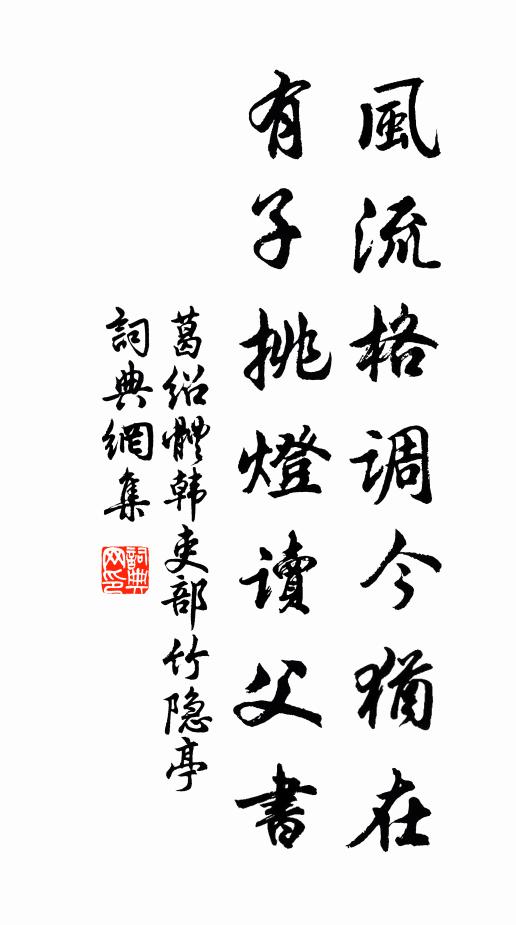 風流格调今猶在
有子挑燈讀父書
葛绍體韩吏部竹隐亭
詞典網集
詞典网印